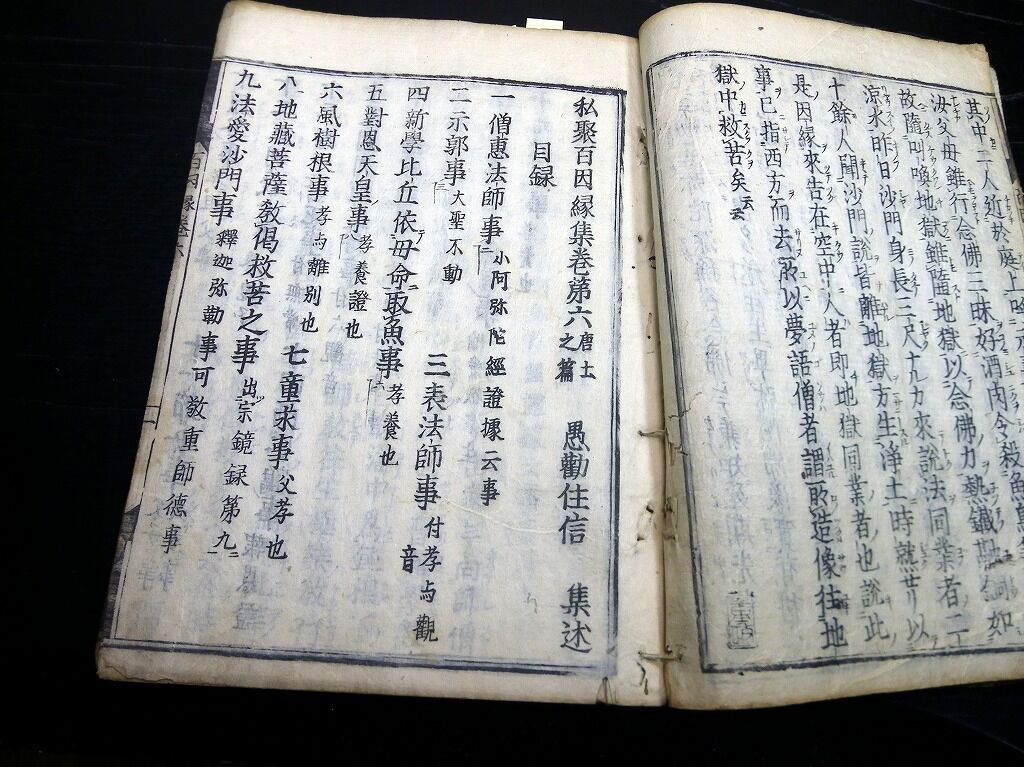 其中二人近於庭上
汝父母雖行念佛三昧好酒肉令殺魚鳥
故墮叫喚地獄雖墮地獄以念佛力熱鐵 如
涼水昨日沙門身長三尺十九方來說法同業者二十
十餘人聞沙門說皆離地獄方生淨土時熱サリ以
是因緣來告在空中人者即地獄同業者也說此
事已指西方而去所以夢語僧者謂所造像往地
獄中救苦矣云云
私聚百因緣集卷第六唐土之篇 愚勸住信 集述
目録
一僧惠法師事小阿弥陀經證據云事
二示郭事大聖不動 三表法師事付孝与觀音
四新學比丘依母命取魚事孝養也
五對恩天皇事孝養證也
六風樹根事孝与離別也 七童求事父孝也
八地藏菩薩敎偈救苦之事出宗鏡録第九ニ
九法愛沙門事釋迦弥勒事可敬重師德事